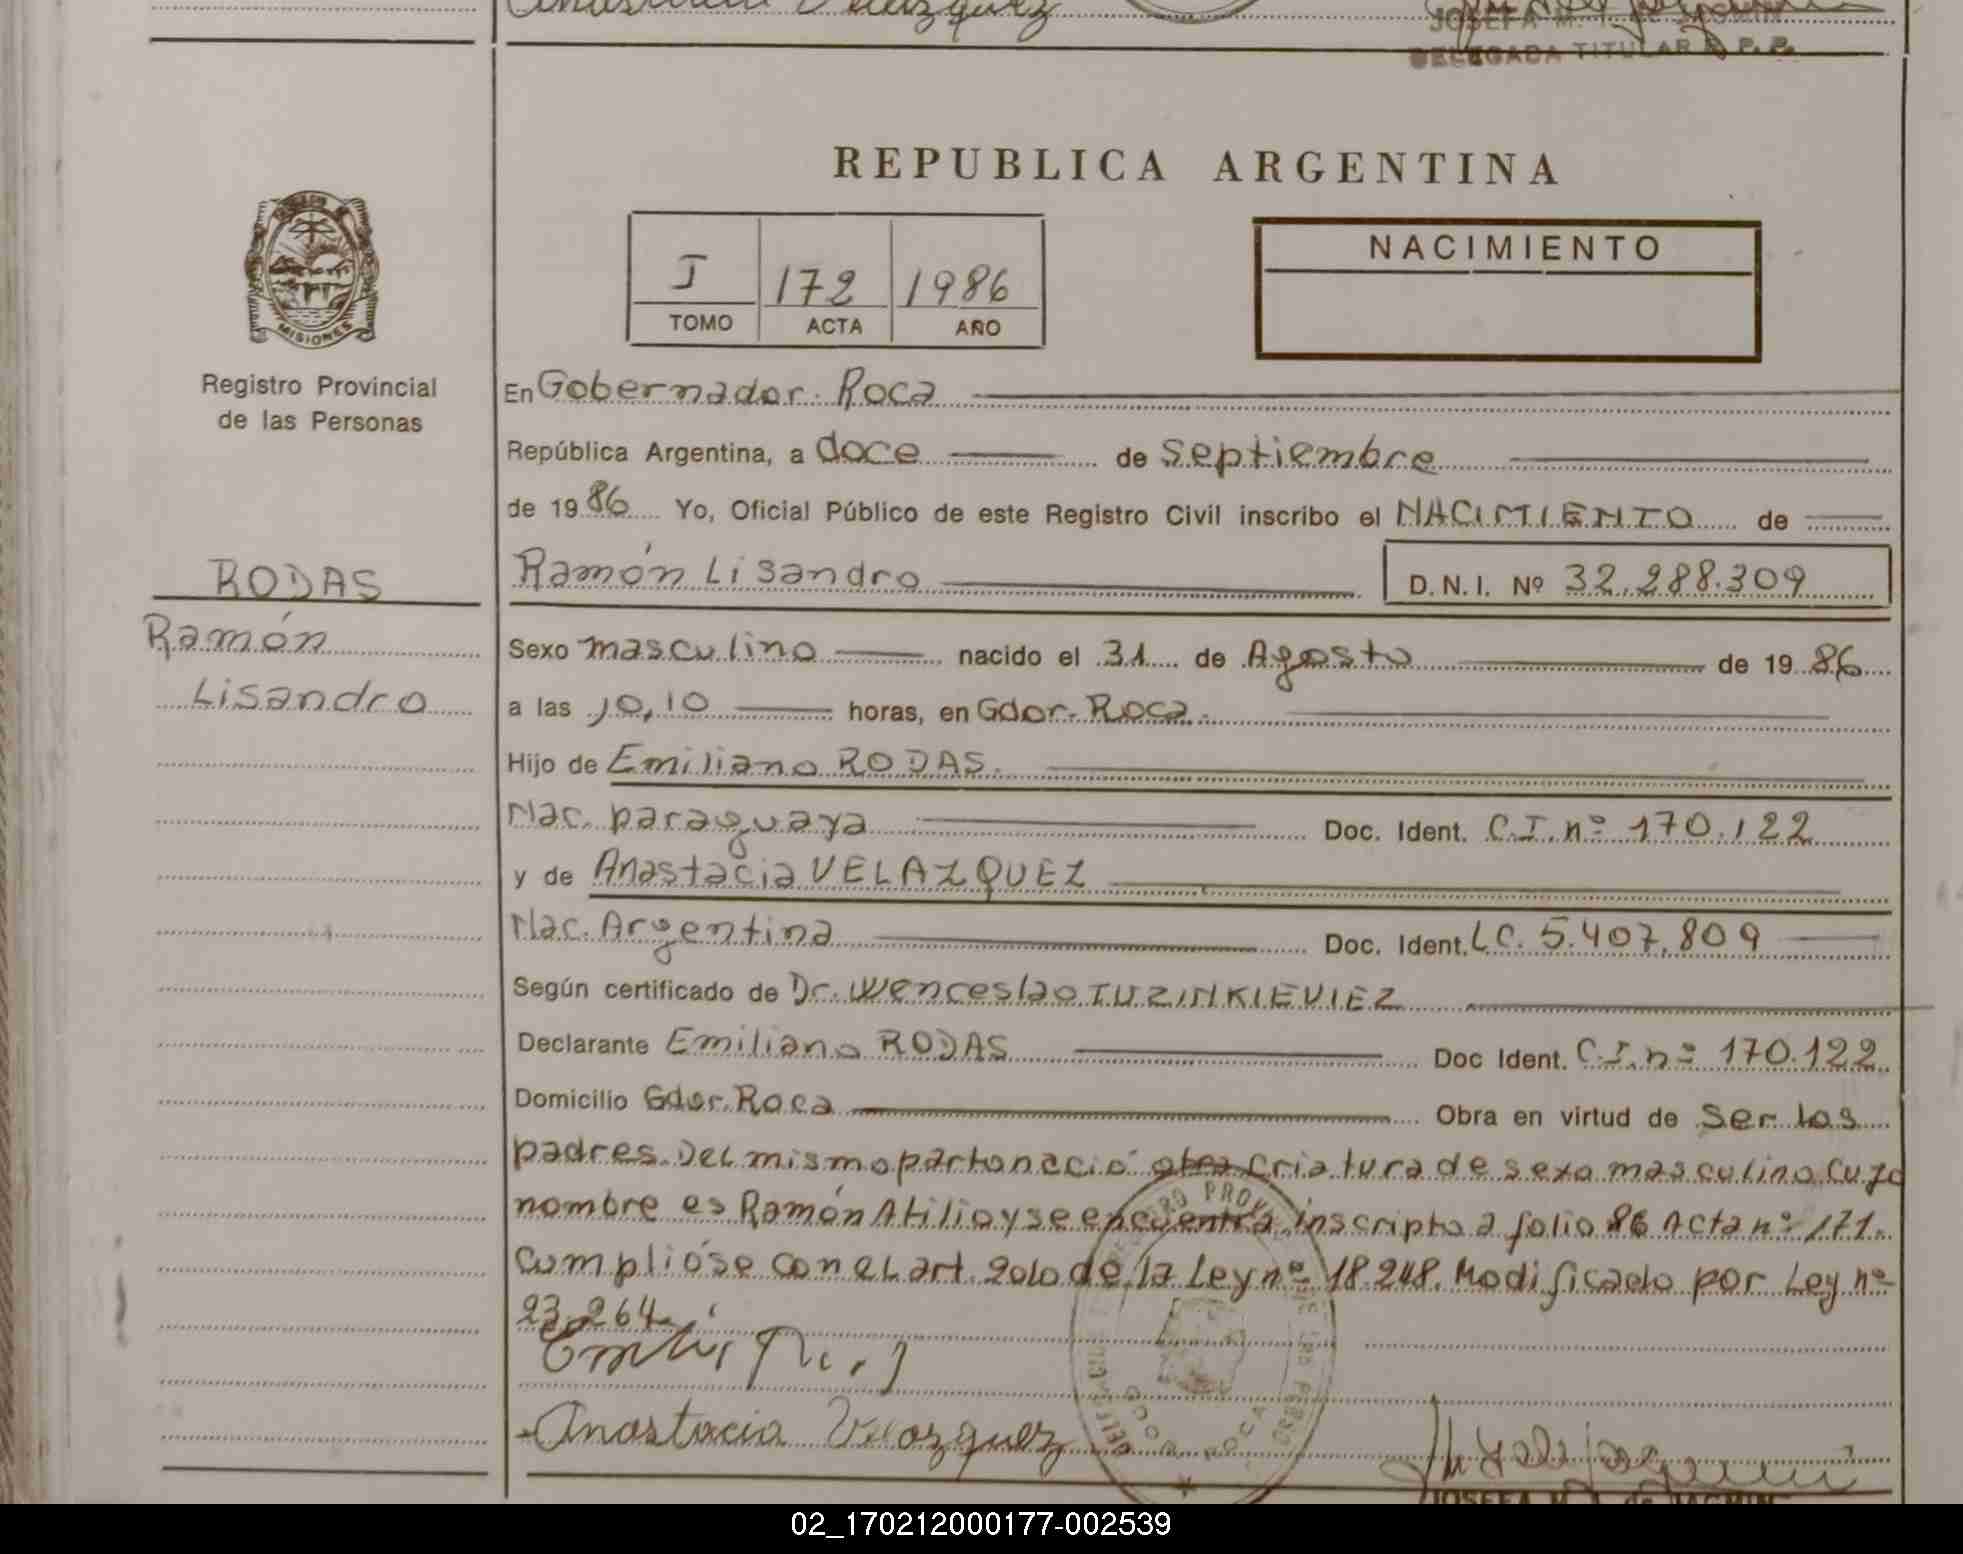 Anastacia Velazquez
JOSEFA M. T. de JACMIN
DELEGADA TITULAR R. P. P.
REPUBLICA ARGENTINA
MISIONES
Registro Provincial
de las Personas
I 172 1986
TOMO ACTA AÑO
NACIMIENTO
En Gobernador Roca
República Argentina, a doce de septiembre
de 1986 Yo, Oficial Público de este Registro Civil inscribo el NACIMIENTO de
RODAS
Ramón
Lisandro
Ramón Lisandro D.N.I. Nº 32.288.309
Sexo masculino nacido el 31 de Agosto de 1986
a las 10,10 horas, en Gdor. Roca.
Hijo de Emiliano RODAS.
Nac. paraguaya Doc. Ident. C.I. nº 170.122
y de Anastacia VELAZQUEZ
Nac. Argentina Doc. Ident. LC. 5.407.809
Según certificado de Dr. Wenceslao TUZINKIEVIEZ
Declarante Emiliano RODAS Doc Ident. C.I. nº 170.122
Domicilio Gdor. Roca Obra en virtud de Ser los
padres. Del mismo parto nació otra criatura de sexo masculino cuyo
nombre es Ramón Atilio y se encuentra inscripto a folio 86 Acta nº 171.
Cumplióse con el art. 2do de la Ley nº 18.248. Modificado por Ley nº
23.264.
Anastacia Velazquez
02_170212000177-002539